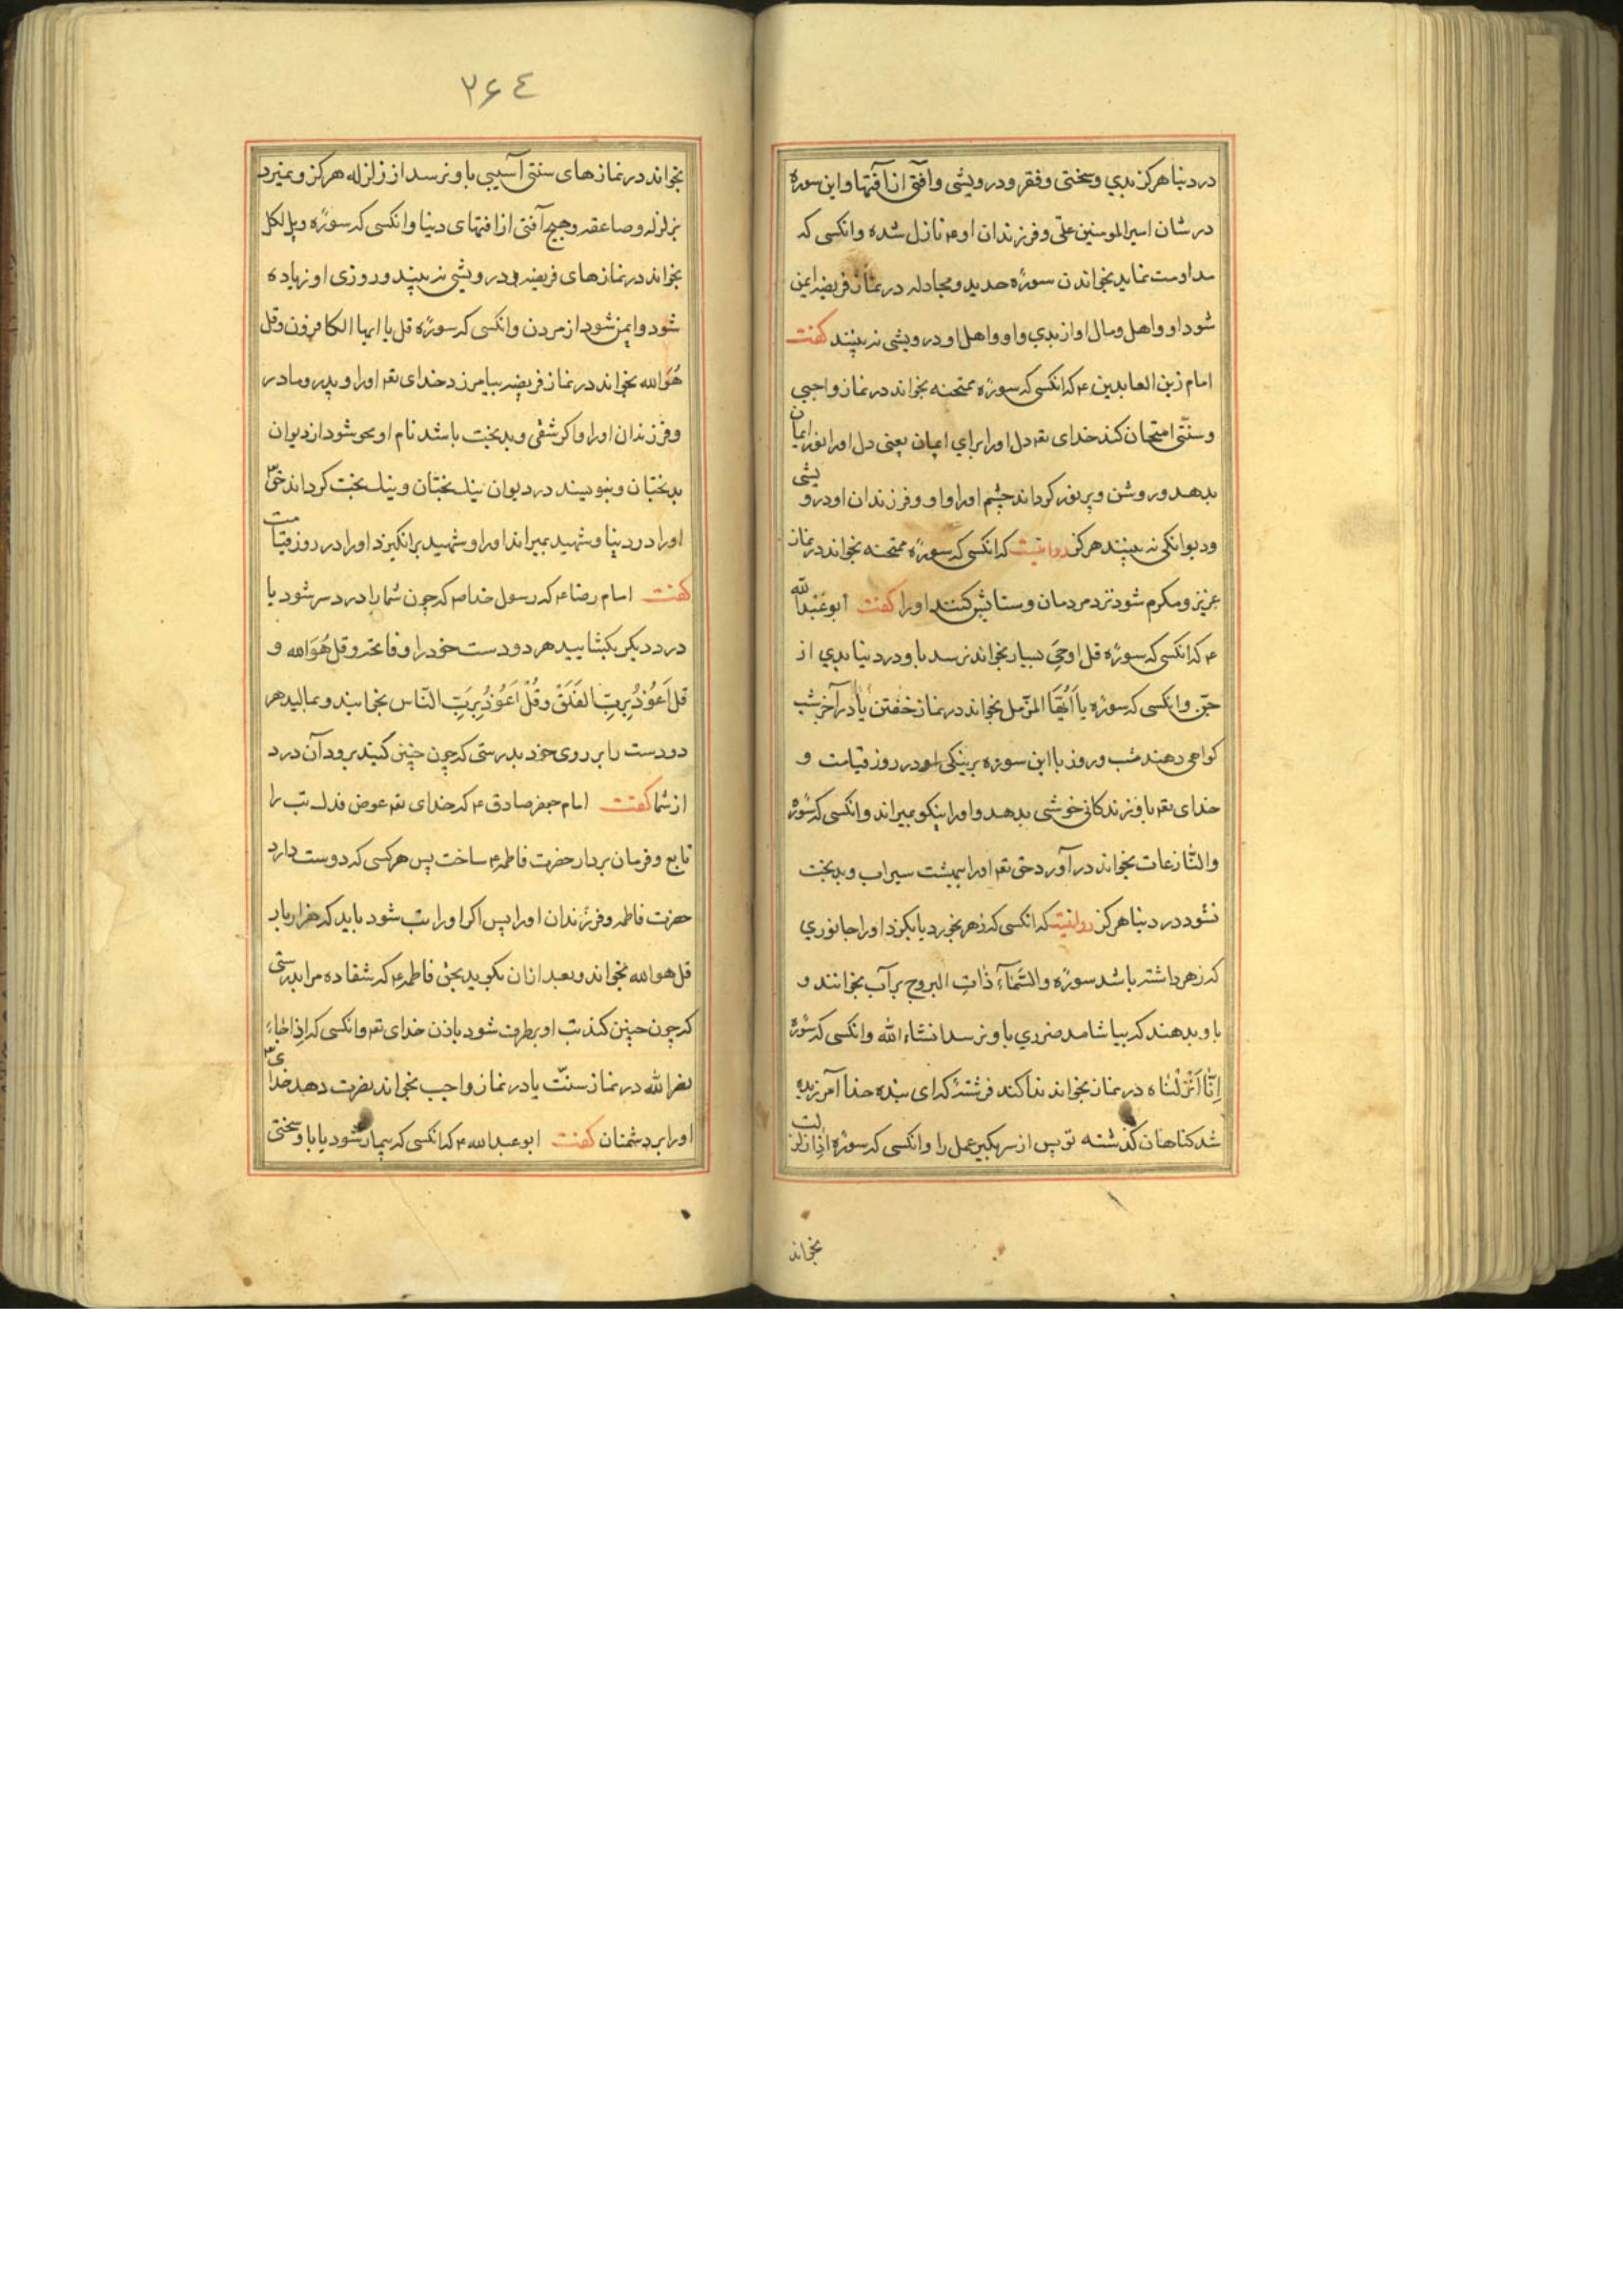 در دنیا هرکز بدي وسختی وفقر ودرویشی وآفتی از آفتها واین سوره
در شان امیرالمومنین علی وفرزندان او ع نازل شده وانکسی که
مداومت نماید بخواندن سورۀ حدید ومجادله در نماز فریضه ایمن
شود او واهل ومال او از بدي واو واهل او درویشی نه بینند کفت
امام زین العابدین ع که انکسی که سورۀ ممتحنه بخواند در نماز واجبی
وسنتی امتحان کند خدای تع دل او را برای ایمان یعنی دل او را نور ایمان
بدهد وروشن وپر نور کرداند چشم او را واو وفرزندان او درویشی
ودیوانکی نه بینند هرکز روایتست که انکسی که سورۀ ممتحنه بخواند در نماز
عزیز ومکرم شود نزد مردمان وستایش کنند او را کفت ابوعبدالله
ع که انکسی که سورۀ قل اوحي بسیار بخواند نرسد باو در دنیا بدي از
جن وانکسی که سورۀ یا اَیُّهَا المزّمل بخواند در نماز خفتن یا در آخر شب
کواهی دهند شب وروز با این سوره بر نیکی او در روز قیامت و
خدای تع باو زندکانی خوشی بدهد واو را نیکو بمیراند وانکسی که سورۀ
والنّازعات بخواند در آورد حق تع او را ببهشت سیراب وبدبخت
نشود در دنیا هرکز روایتست که انکسی که زهر بخورد یا بکزد او را جانوري
که زهر داشته باشد سورۀ والسَّمآءِ ذٰاتِ البروج بر آب بخوانند و
باو بدهند که بیاشامد ضرري باو نرسد انشاء الله وانکسی که سورۀ
اِنّٰا اَنْزَلْنٰاه در نماز بخواند ندا کند فرشتۀ که ای بندۀ خدا آمرزیده
شد کناهان کذشته تو پس از سر بکیر عمل را وانکسی که سورۀ اذا زلزلت
بخواند
۲۶٤
بخواند در نمازهای سنتی آسیبی باو نرسد از زلزله هرکز ونمیرد
بزلزله وصاعقه وهیچ آفتی از افتهای دنیا وانکسی که سورۀ ویل لکل
بخواند در نمازهای فریضه او درویشی نه بیند وروزی او زیاده
شود وایمن شود از مردن وانکسی که سورۀ قل یا ایها الکافرون وقل
هُوَ الله بخواند در نماز فریضه بیامرزد خدای تع او را وپدر ومادر
وفرزندان او را واکر شقی وبدبخت باشد نام او محو شود از دیوان
بدبختان وبنویسند در دیوان نیک بختان ونیک بخت کرداند حق تع
او را در دنیا وشهید بمیراند او را وشهید برانکیزد او را در روز قیامت
کفت امام رضا ع که رسول خدا ص که چون شما را درد سر شود یا
درد دیکر بکشایید هر دو دست خود را وفاتحه وقل هُوَ الله و
قل اَعُوذُ بِرَبِّ الفَلَقْ وقُلْ اَعُوذُ بِرَبِّ النّاس بخوانید وبمالید هر
دو دست را بر روی خود بدرستی که چون چنین کنید برود آن درد
از شما کفت امام جعفر صادق ع که خدای تع عوض فدک تب را
تابع وفرمان بردار حضرت فاطمه ع ساخت پس هرکسی که دوست دارد
حضرت فاطمه وفرزندان او را پس اکر او را تب شود باید که هزار بار
قل هوالله بخواند وبعد از ان بکوید بحق فاطمه ع که شفا ده مرا بدرستی
که چون چنین کند تب او بر طرف شود باذن خدای تع وانکسی که اِذا جٰاءَ
نصرالله در نماز سنّت یا در نماز واجب بخواند نصرت دهد خدای تع
او را بر دشمنان کفت ابوعبدالله ع که انکسی که بیمار شود یا باو سختی